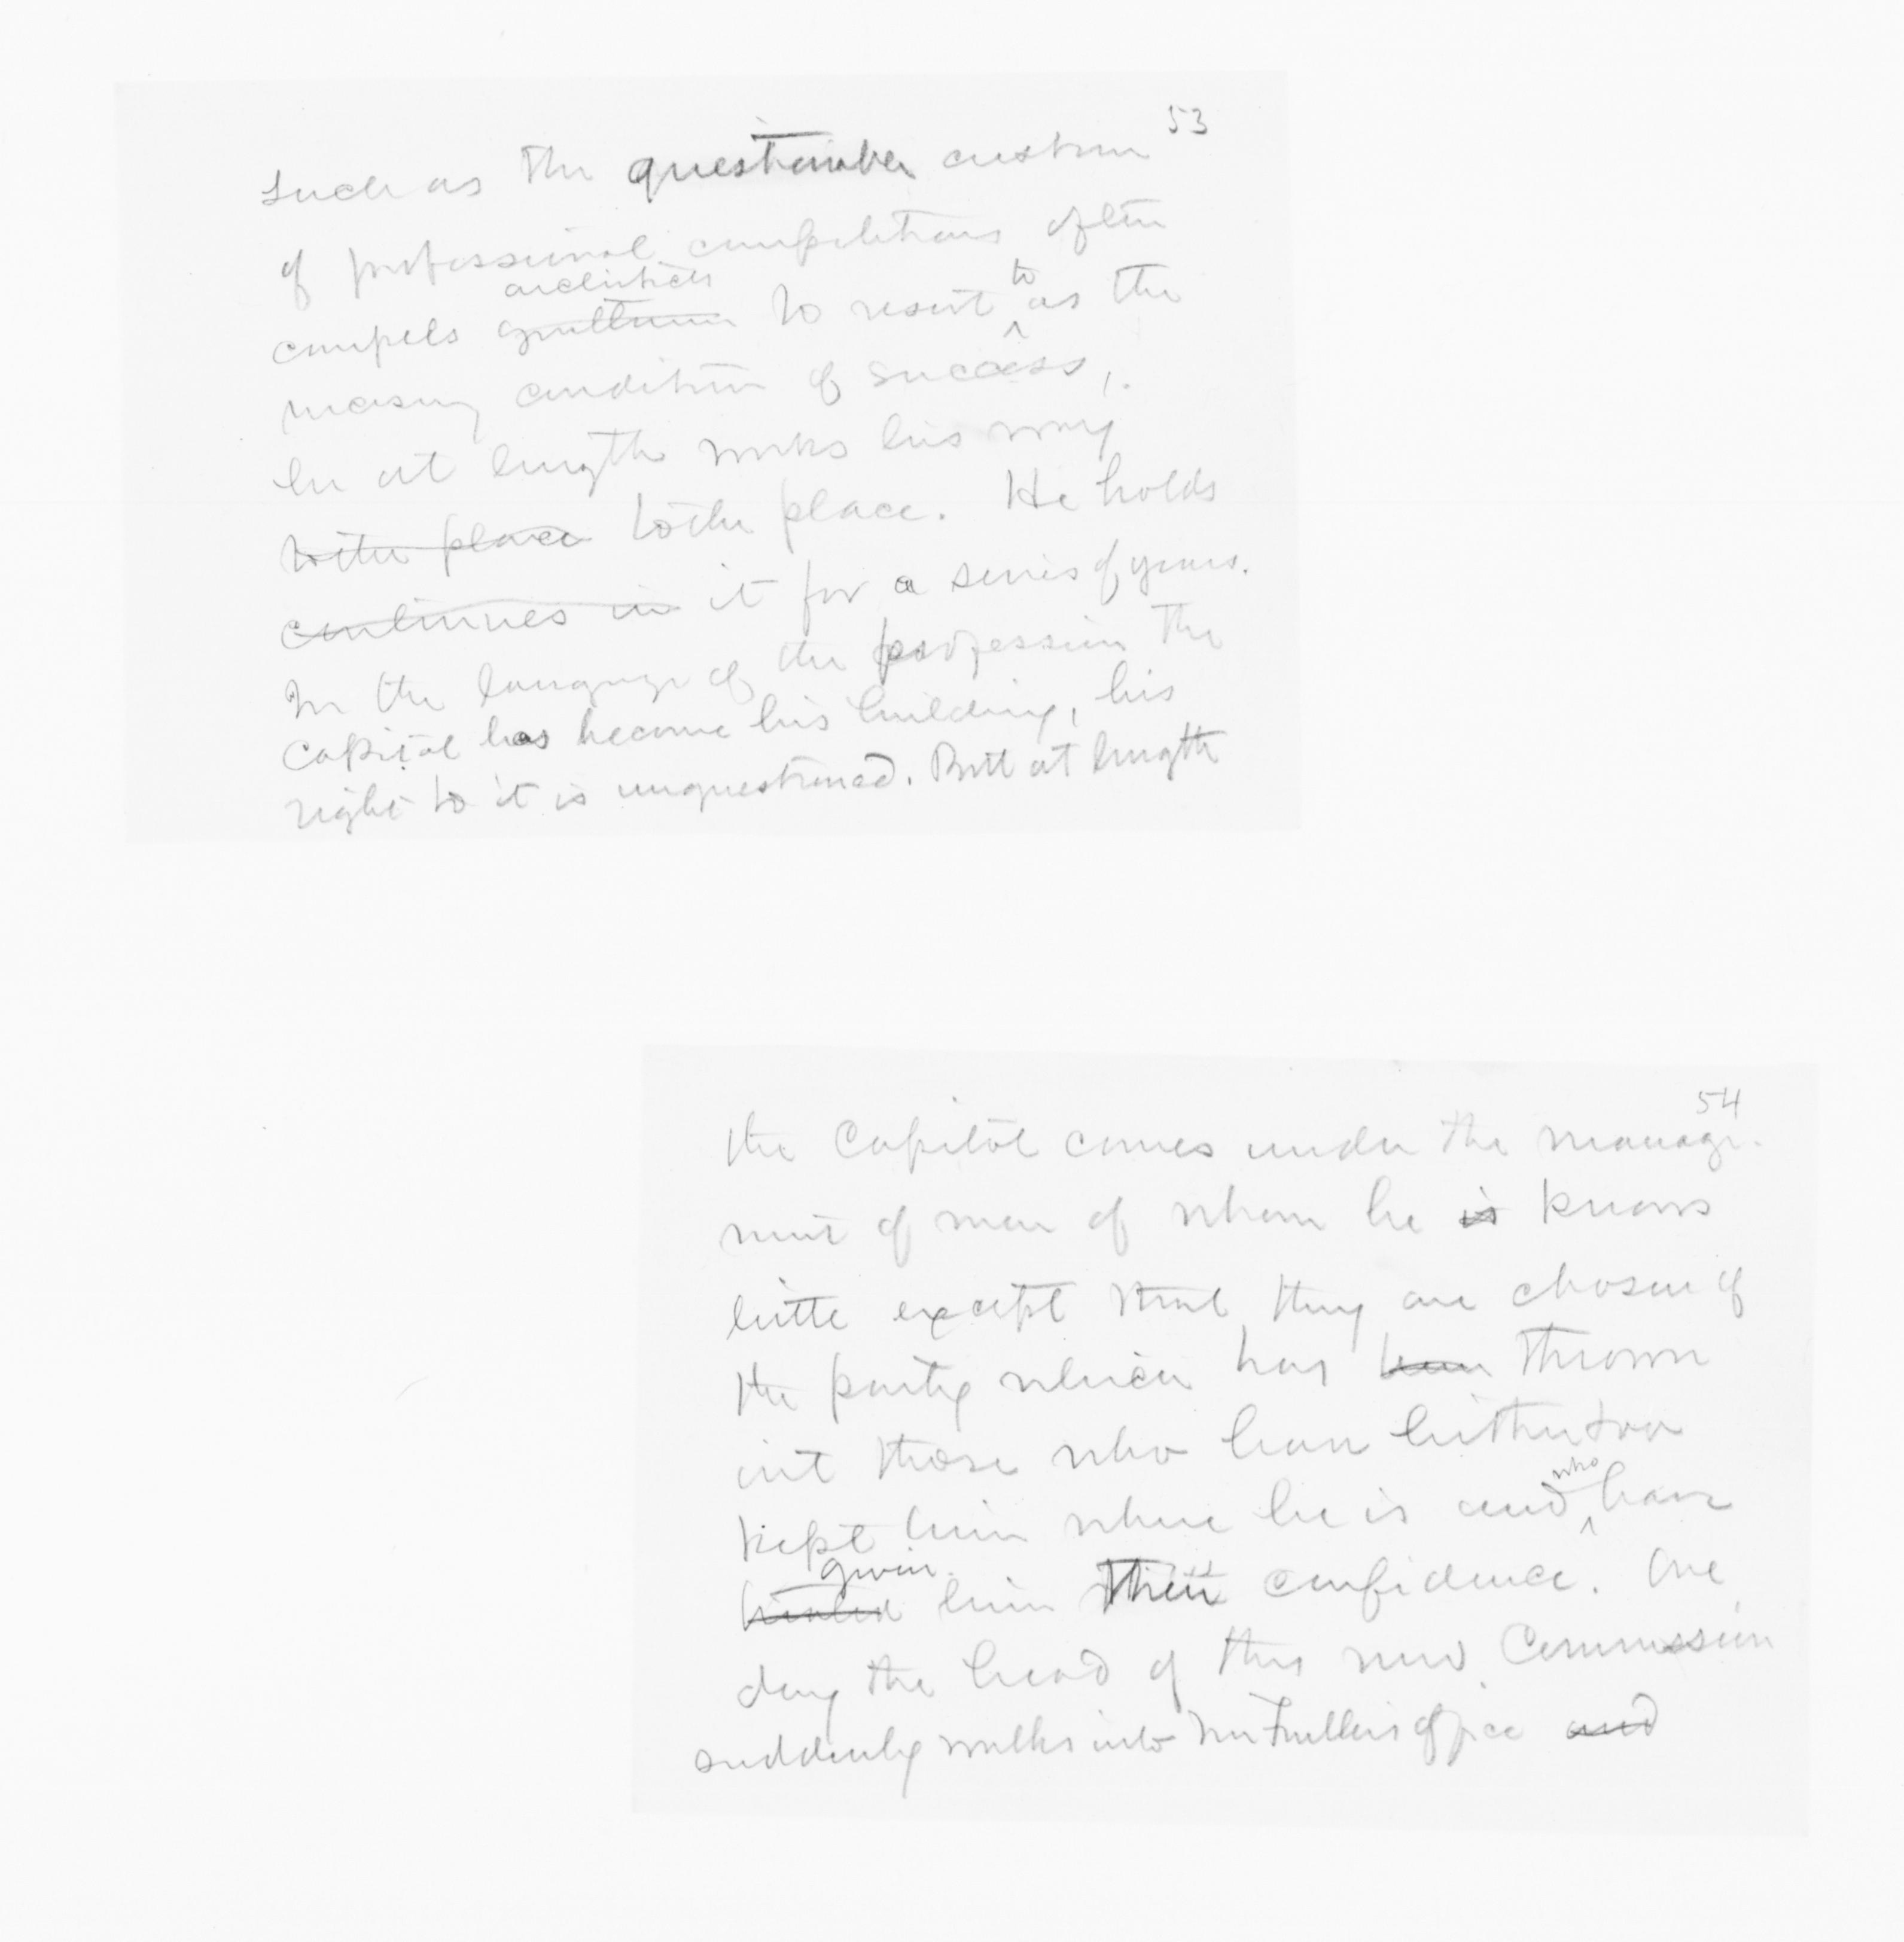 53
such as the questionable custom
of professional competitions often
architects
compels gentlemen to resort to as the
necessary condition of success,.
he at length works his way
to the place to the place. He holds
continues in it for a series of years.
In the language of the profession the
Capitol has become his building, his
right to it is unquestioned. But at length
54
the Capitol comes under the manage-
ment of men of whom he is knows
little except that they are chosen of
the party which has been thrown
out those who have hitherto
kept him where he is and who have
given
him their confidence. One
day the head of this new Commission
suddenly walks into Mr Fuller's office and